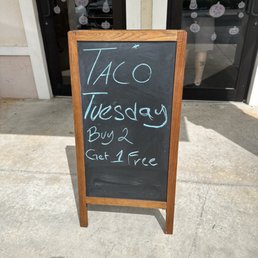 TACO
Tuesday
Buy 2
Get 1 Free